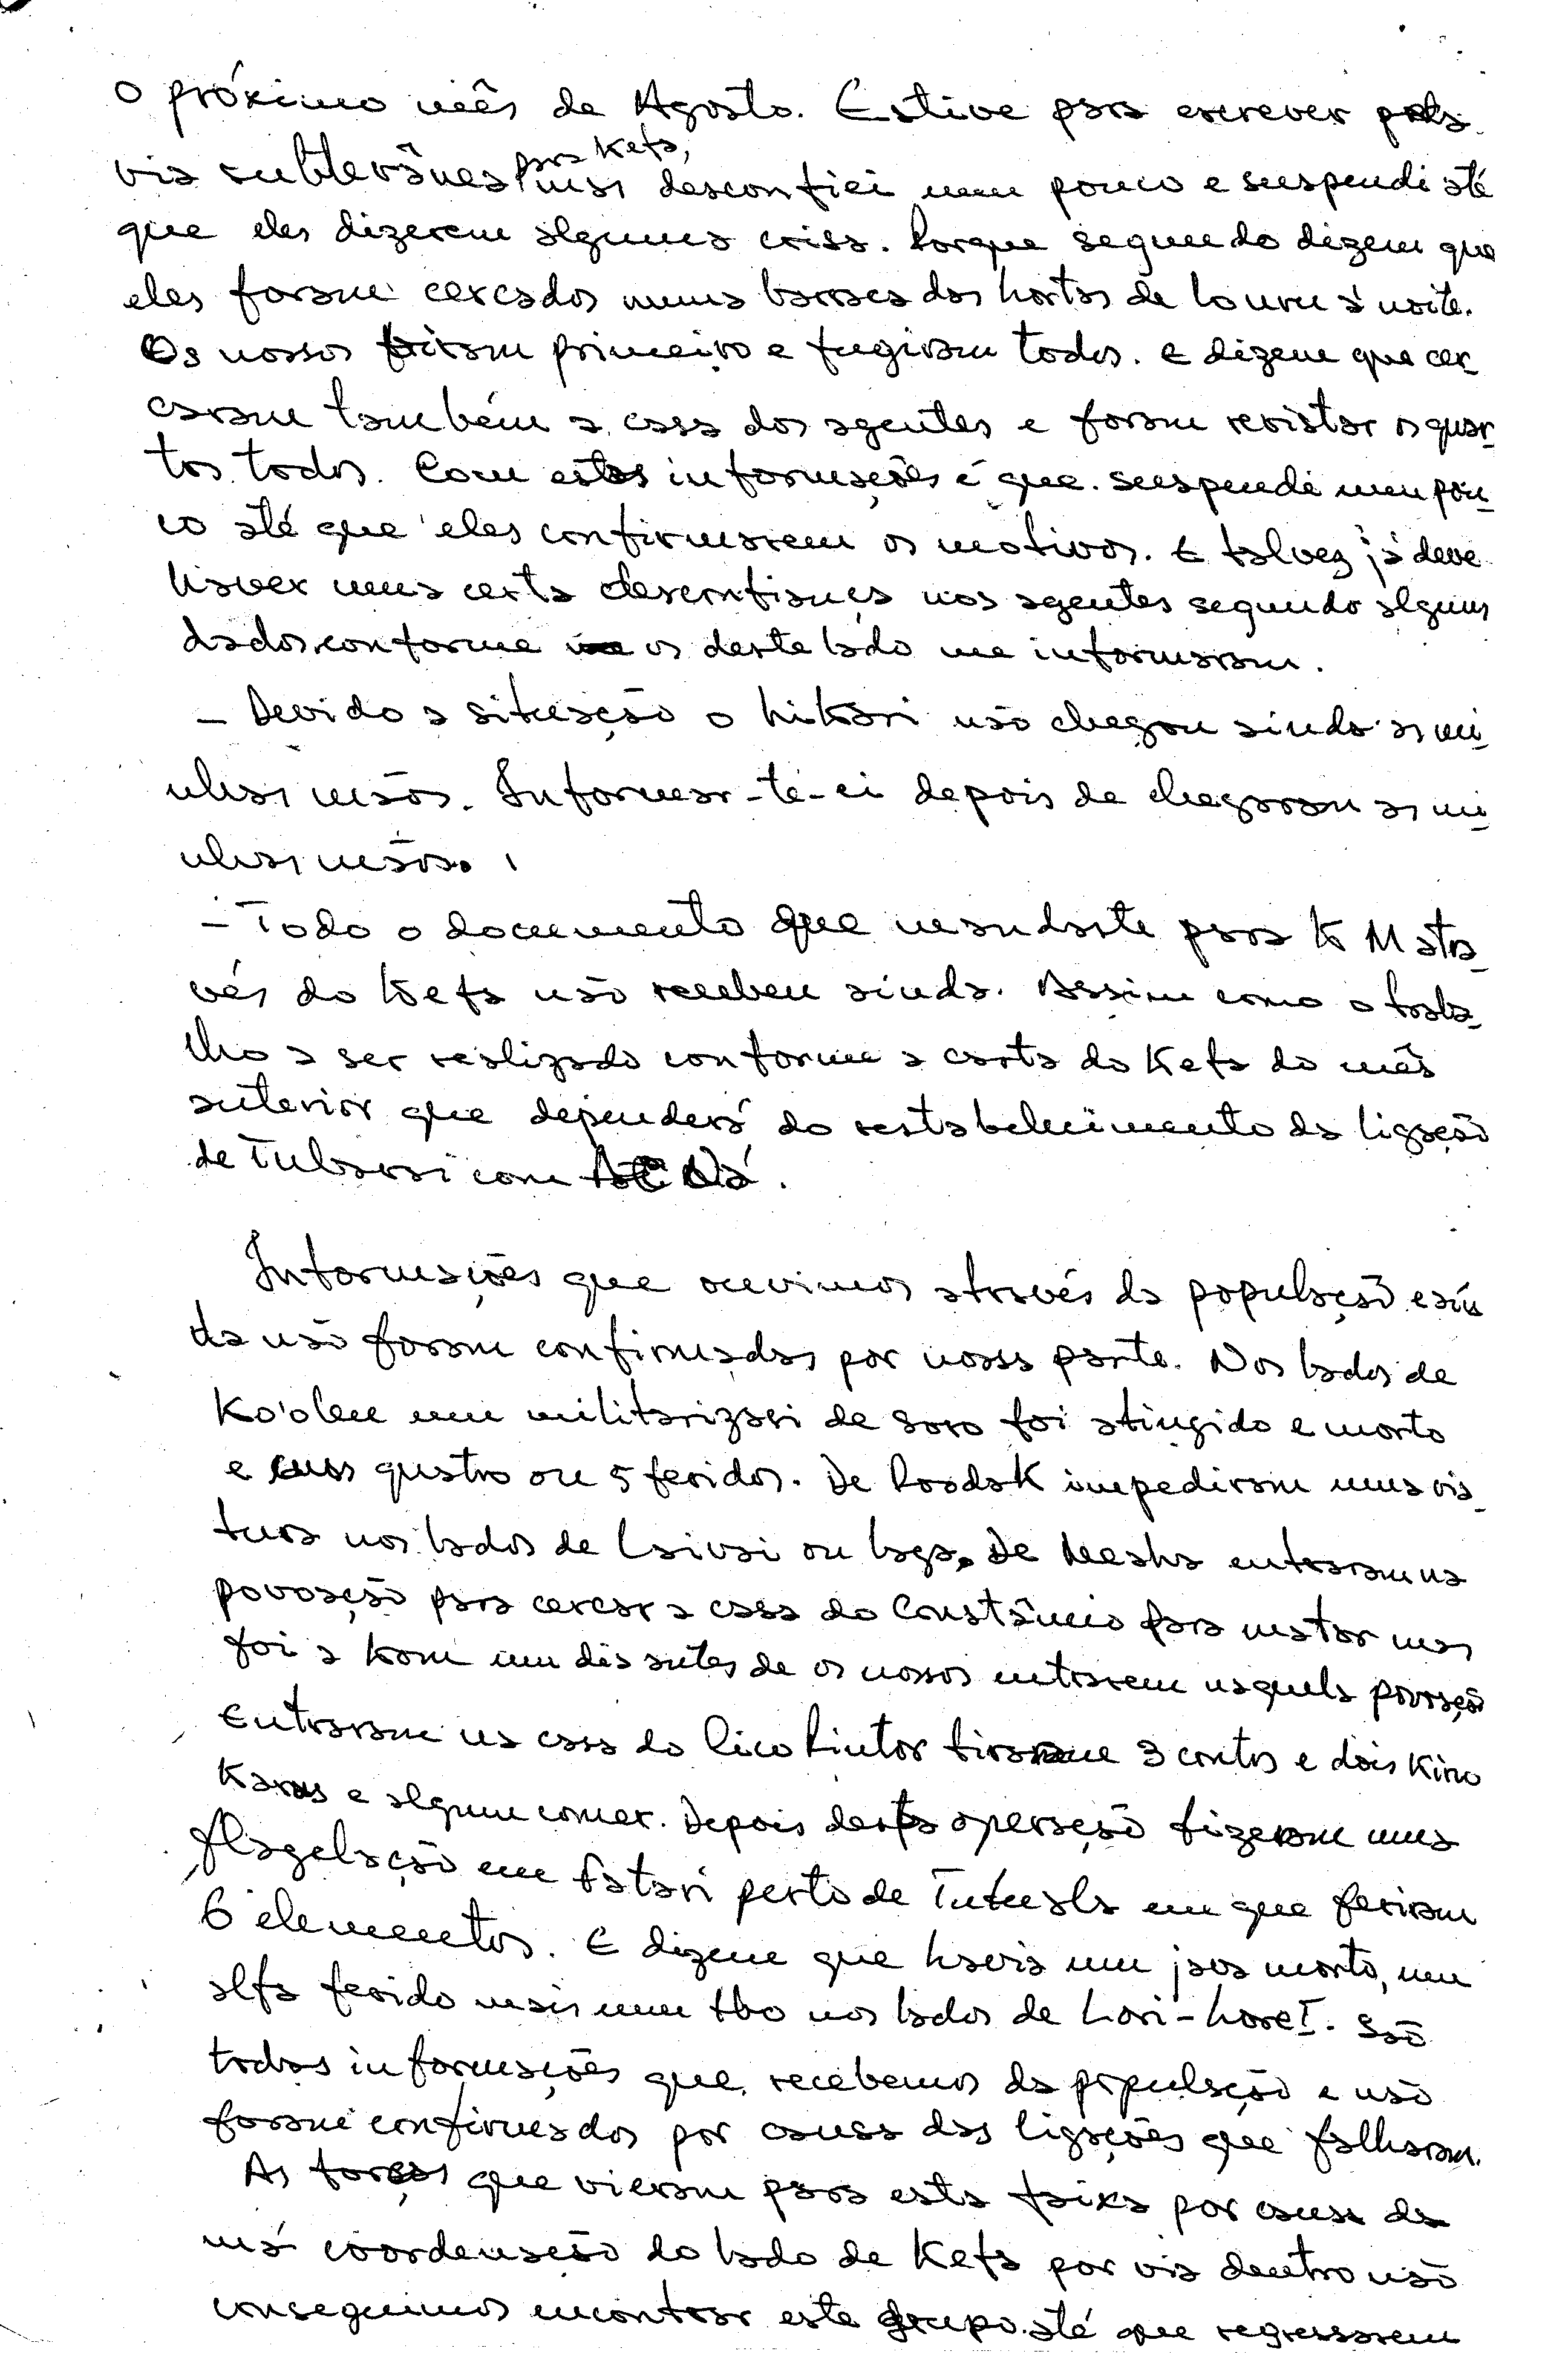 o próximo mês de Agosto. Estive para escrever pela
via subterânea para Kefa, mas desconfiei um pouco e suspendi até
que eles dizerem alguma coisa. Porque segundo dizem que
eles foram cercados numa barraca das hortas de Louru à noite.
Os nossos tiram primeiro e fugiram todos. E dizem que cer-
caram também a casa dos agentes e foram revistar os quar-
tos todos. Com estas informações é que suspende um pou-
co até que eles confirmarem os motivos. E talvez já deve
haver uma certa desconfiança nos agentes segundo alguns
dados conforme os deste lado me informaram.
- Devido a situação o hikari não chegou ainda as mi-
nhas mãos. Informar-te-ei depois de chegaram as mi-
nhas mãos.
- Todo o documento que mandaste para K M atra-
vés do Kefa não recebeu ainda. Assim como o traba-
lho a ser realizado conforme a carta do Kefa do mês
anterior que dependerá do restabelecimento da ligação
de Tubarai com
Informações que ouvimos através da população e ain-
da não foram confirmadas por nossa parte. Nos lados de
Ko'oleu um militarizasi de soro foi atingido e morto
e uns quatro ou 5 feridos. De Roodak impediram uma via-
tura nos lados de Laivai ou Laga. De Neaha entraram na
povoação para cercar a casa do Constâncio para matar mas
foi a kom um dia antes de os nossos entrarem naquela povoação
Entraram na casa do Rico Pintor tiraram 3 contos e dois kino
karas e algum comer. Depois desta operação fizeram uma
flagelação em Fatari perto de Tutuala em que feriram
6 elementos. E dizem que havia um java morto, um
alfa ferido mais um tbo nos lados de Lori-Lore I. São
todas informações que recebemos da população e não
foram confirmados por causa das ligações que falharam.
As forças que vieram para esta faixa por causa da
má coordenação do lado de Kefa por via dentro não
conseguimos encontrar este grupo até que regressarem